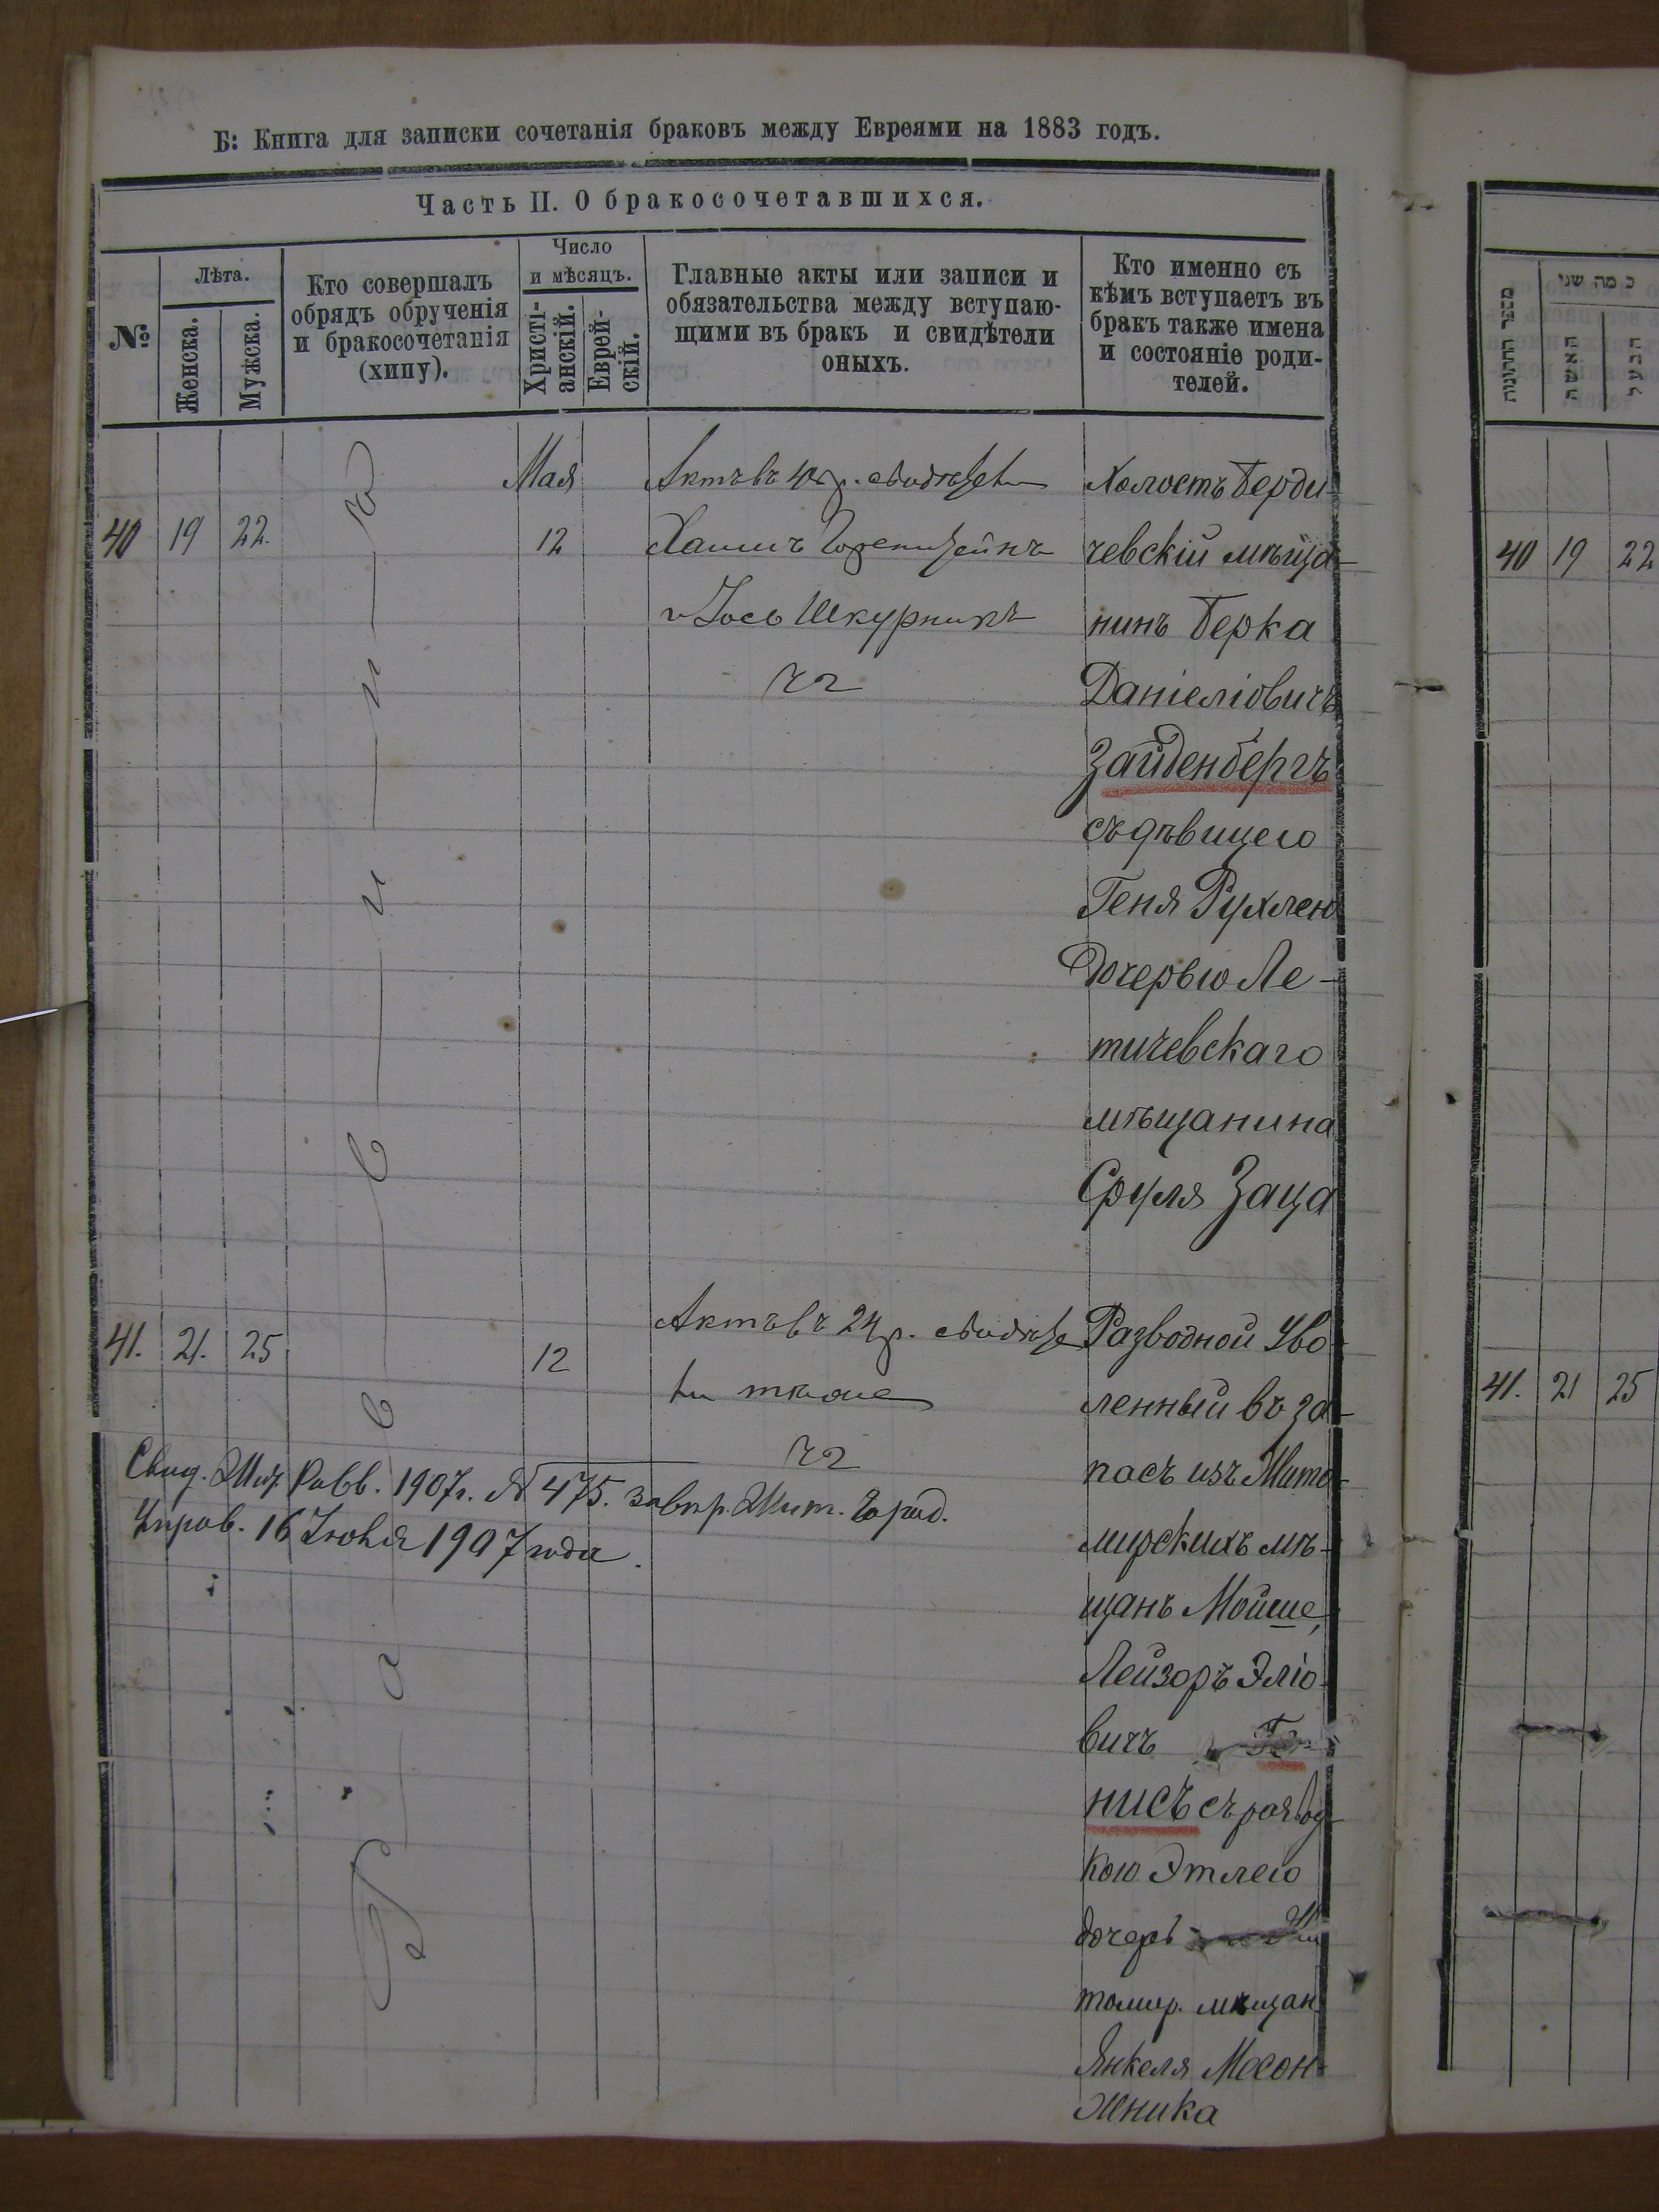 Б: Книга для записки сочетанія браковъ между Евреями на 1883 годъ.
Часть II. О бракосочетавшихся.
№
Лѣта.
Женска.
Мужска.
Кто совершалъ
обрядъ обрученія
и бракосочетанія
(хипу).
Число
и мѣсяцъ.
Христі-
анскій.
Еврей-
скій.
Главные акты или записи и
обязательства между вступаю-
щими въ бракъ и свидѣтели
оныхъ.
Кто именно съ
кѣмъ вступаетъ въ
бракъ также имена
и состояніе роди-
телей.
Раввинъ
40
19
22.
Мая
12
Актъ въ р. свидѣтели
Хаимъ
и Іось Шкурникъ
Холостъ Берди-
чевскій мѣща-
нинъ Берка
Даніеліовичъ
Зайденбергъ
съ дѣвицею
Геня Рухлею
Дочерью Ле-
тичевскаго
мѣщанина
Сруля Заца
41.
21.
25
12
Актъ въ 24 р. свидѣте
ли
Разводной Уво-
ленный въ за-
пасъ изъ Жито-
мирскихъ мѣ-
щанъ Мойше,
Лейзоръ Эліо-
вичъ
нисъ съ развод
кою Этлею
дочерь
томир. мѣщан.
Янкеля Месон-
жника
Свид. Жит. Равв. 1907 г. № 475. Завѣр. Жит. Город.
Управ. 16 Іюня 1907 года.
מספר החתונות
כמה שני
האשה
הבעל
40
19
22
41.
21
25